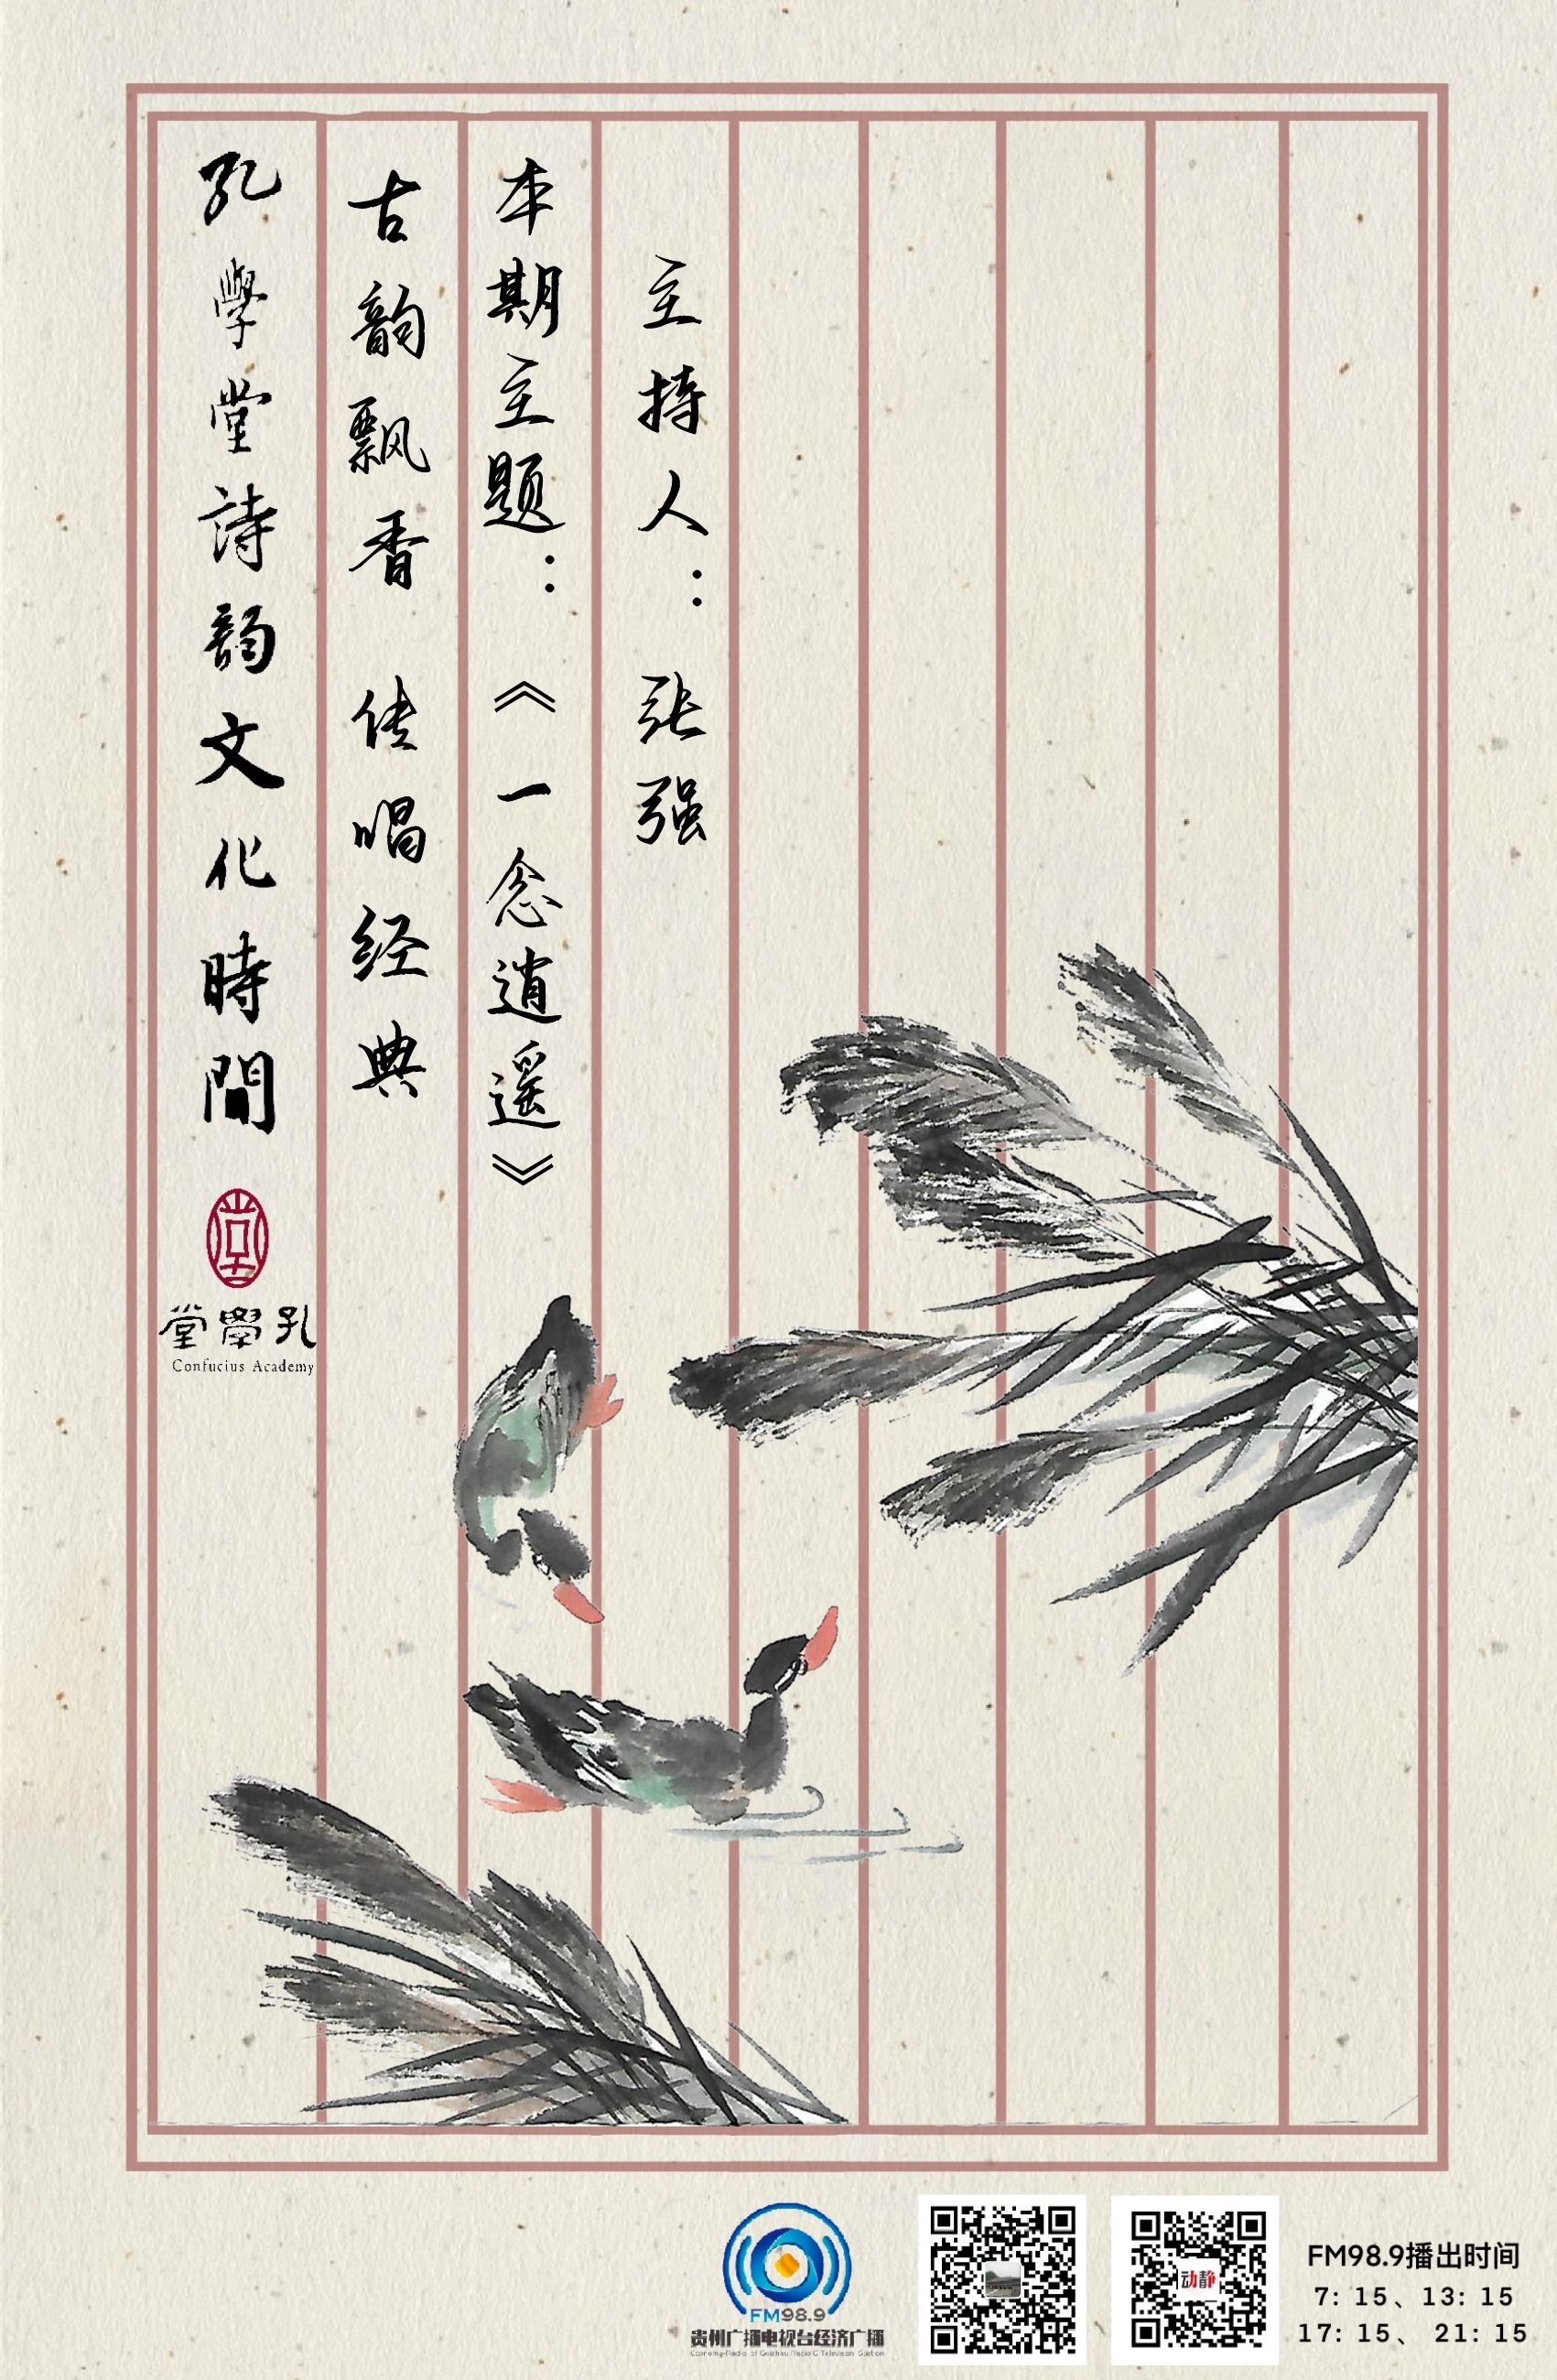 孔學堂詩韵文化時間
古韵飘香 传唱经典
本期主题：《一念逍遥》
主持人： 张强
堂學孔
Confucius Academy
FM98.9
贵州广播电视台经济广播
Economy-Radio of Guizhou Radio & Television Station
动静
FM98.9播出时间
7: 15、13: 15
17: 15、 21: 15